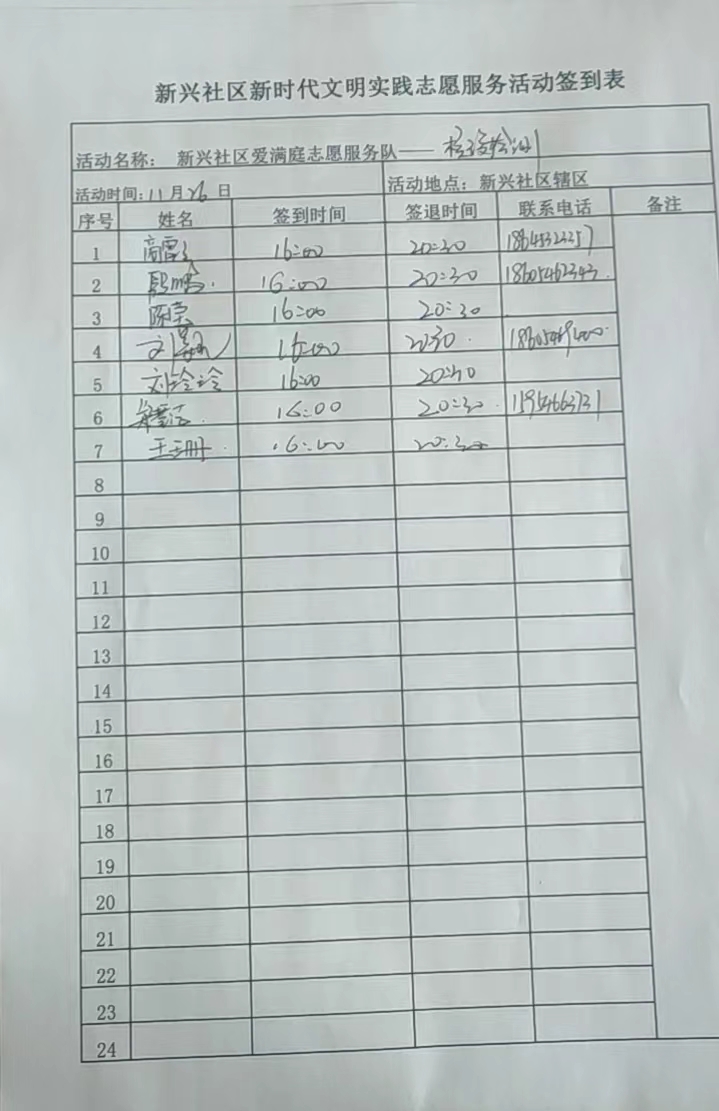 新兴社区新时代文明实践志愿服务活动签到表
活动名称： 新兴社区爱满庭志愿服务队——
活动时间：11月26日 活动地点：新兴社区辖区
序号 姓名 签到时间 签退时间 联系电话 备注
1 16:00 20:30
2 16:00 20:30 18605462343
3 陈 16:00 20:30
4 文 16:00 20:30
5 刘玲玲 16:00 20:30
6 16:00 20:30 15954663731
7 王珊 16:00 20:30
8
9
10
11
12
13
14
15
16
17
18
19
20
21
22
23
24